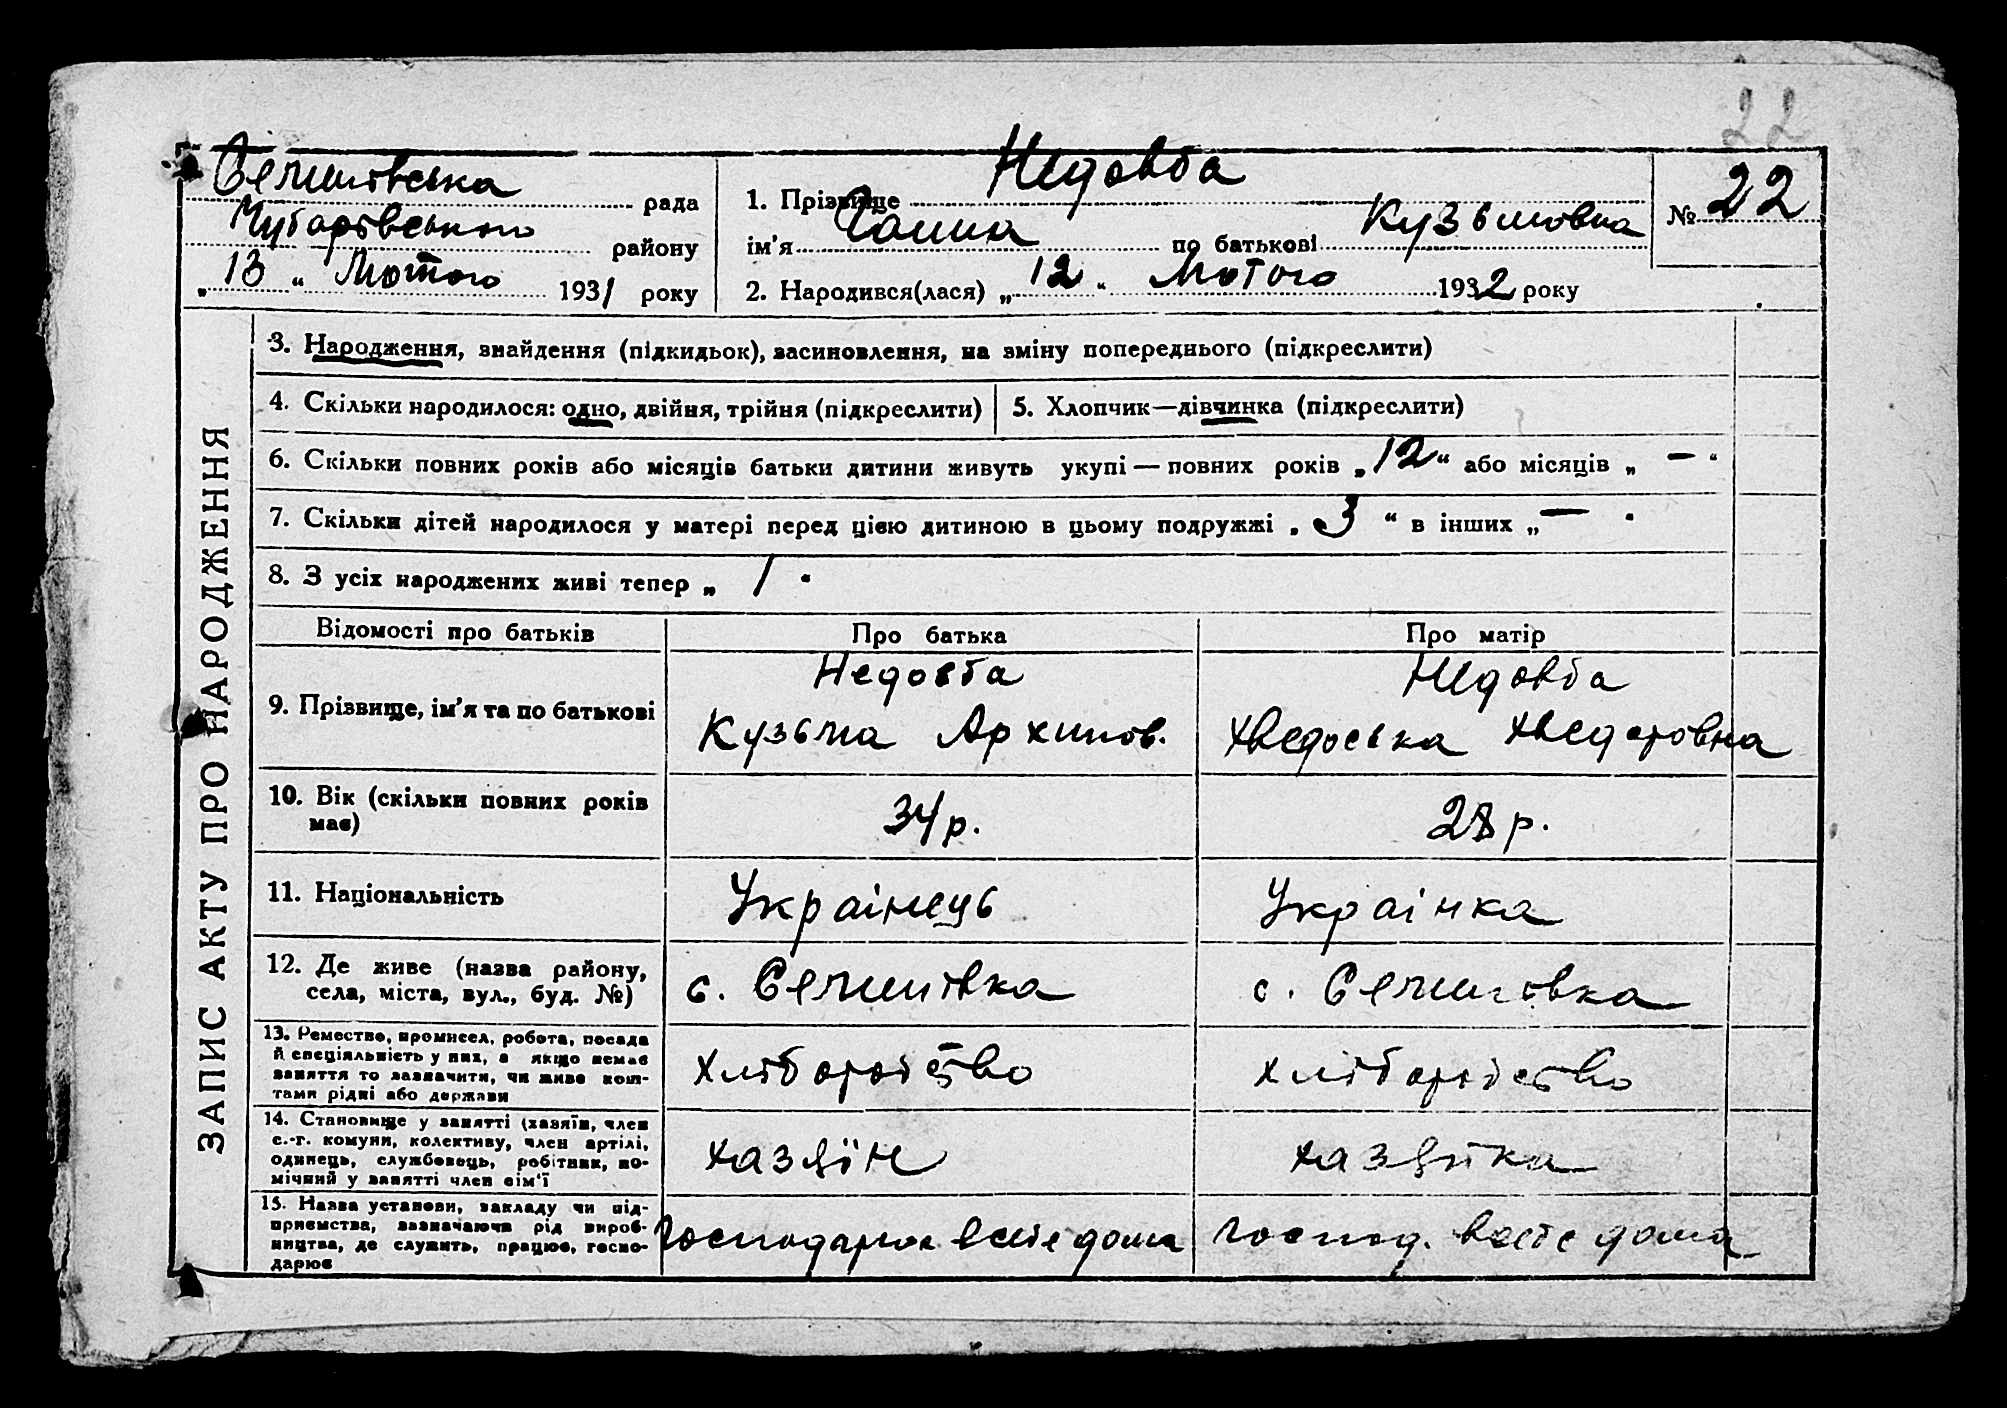 22
Семенівська рада
Чубарівського району
„13“ Лютого 1931 року
1. Прізвище Недовба
ім’я Ганна по батькові Кузьмовна
№ 22
2. Народився(лася) „12“ Лютого 1932 року
ЗАПИС АКТУ ПРО НАРОДЖЕННЯ
3. Народження, знайдення (підкидьок), засиновлення, на зміну попереднього (підкреслити)
4. Скільки народилося: одно, двійня, трійня (підкреслити)
5. Хлопчик—дівчинка (підкреслити)
6. Скільки повних років або місяців батьки дитини живуть укупі — повних років „12“ або місяців „ — “
7. Скільки дітей народилося у матері перед цією дитиною в цьому подружжі „ 3 “ в інших „ — “
8. З усіх народжених живі тепер „ 1 “
Відомості про батьків
Про батька
Про матір
9. Прізвище, ім’я та по батькові
Недовба
Кузьма Архипов.
Недовба
Хведоська Хведоровна
10. Вік (скільки повних років
має)
34 р.
28 р.
11. Національність
Украінець
Украінка
12. Де живе (назва району,
села, міста, вул., буд. №)
с. Семенівка
с. Семенівка
13. Ремество, промисел, робота, посада
й спеціяльність у них, а якщо немає
заняття то зазначити, чи живе кош-
тами рідні або держави
хліборобство
хліборобство
14. Становище у занятті (хазяїн, член
с.-г. комуни, колективу, член артілі,
одинець, службовець, робітник, по-
мічний у занятті член сім’ї
хазяїн
хазяйка
15. Назва установи, закладу чи під-
приємства, зазначаючи рід вироб-
ництва, де служить, працює, госпо-
дарює
Господарює в себе дома
господ. в себе дома